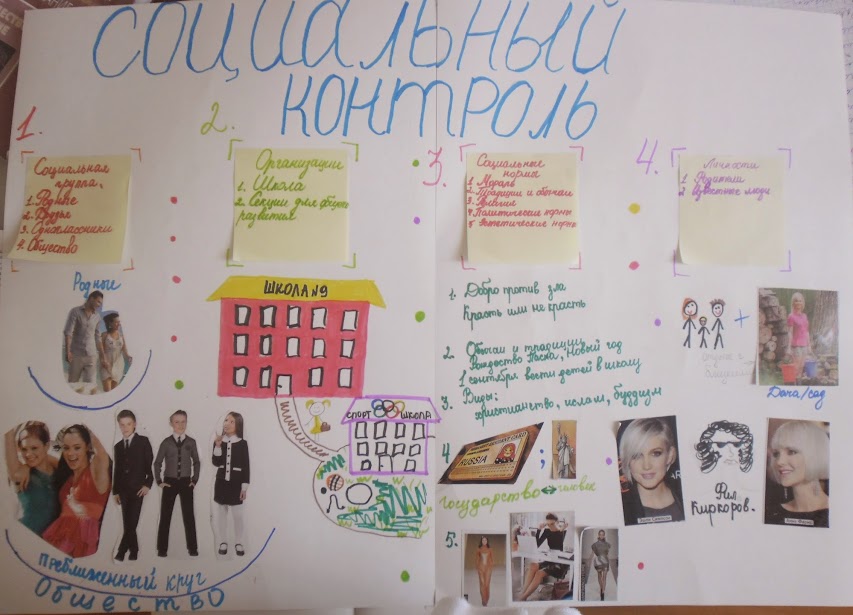 СОЦИАЛЬНЫЙ
КОНТРОЛЬ
1.
Социальная
группа.
1. Родные
2. Друзья
3. Одноклассники
4. Общество
Родные
Преближенный круг
Общество
2.
Организации
1. Школа
2. Секции для общего
развития
ШКОЛА №9
СПОРТ ШКОЛА
3.
Социальные
нормы
1. Мораль
2. Традиции и обычаи
3. Религия
4. Политические нормы
5. Эстетические нормы
1. Добро против зла
Красть или не красть
2. Обычаи и традиции
Рождество Пасха, Новый год
1 сентября вести детей в школу
3 Виды:
христианство, ислам, буддизм
4
RUSSIA
;
государство человек
5.
4.
Личности
1 Родители
2 Известные люди
+
Дача/сад
Фил
Киркоров.